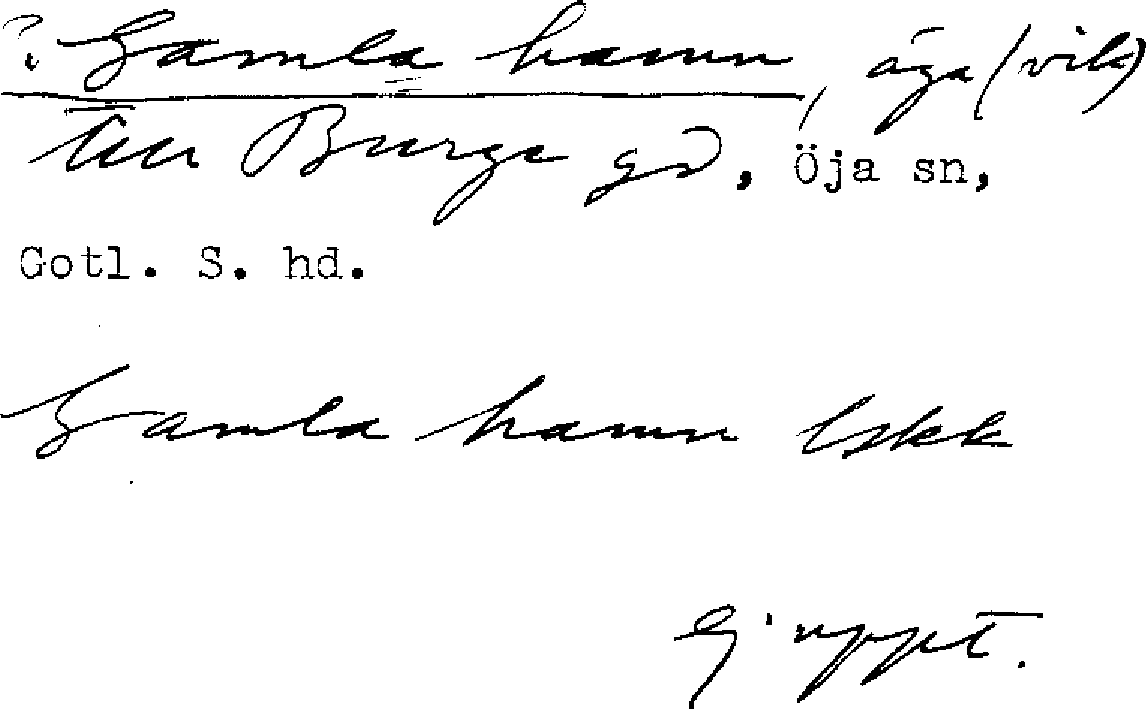 ?. Gamla hamn, äga (vik)
till Burge gd, Öja sn,
Gotl. S. hd.
Gamla hamn lskk
Ej uppt.